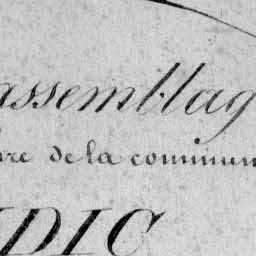 assemblag
re de la commun
DIC